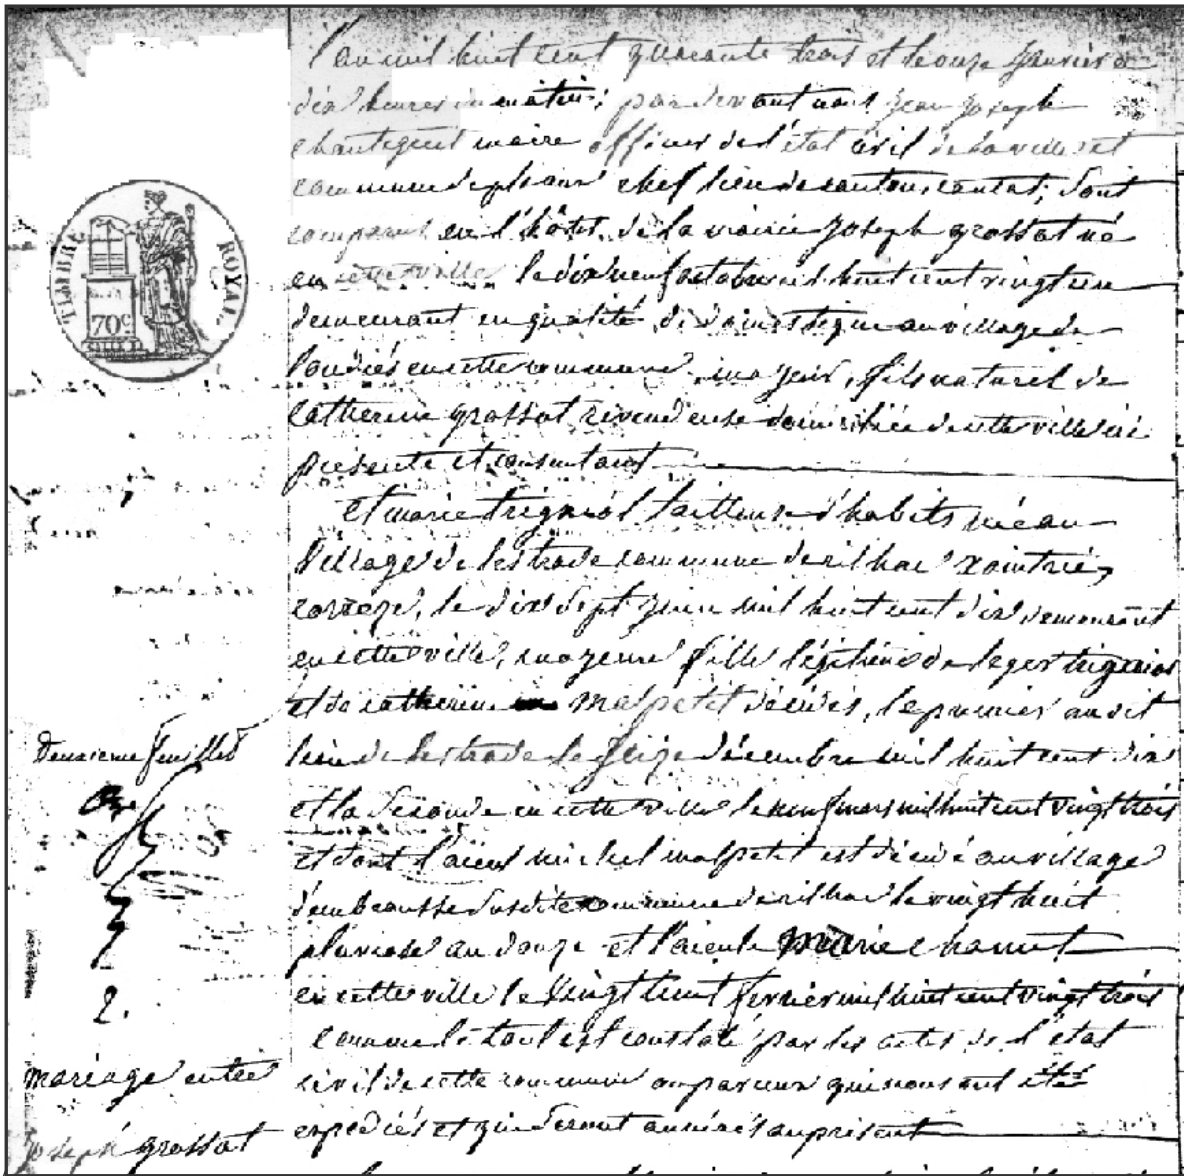 l'an mil huit cent quarante trois et le onze janvier à
dix heures du matin; par devant nous jean joseph
chantegeut maire officier de l'état civil de la ville et
commune de pleaux chef lieu de canton, cantal; sont
comparus en l'hôtel de la mairie joseph grossat né
en cette ville le dix neuf octobre mil huit cent vingt un
demeurant en qualité de domestique au village de
en cette commune, majeur, fils naturel de
catherine grossat revendeuse domiciliée de cette ville ici
présente et consentant
et marie trigniol tailleuse d'habits née au
village de lestrade commune de rilhac xaintrie,
corrèze, le dix sept juin mil huit cent dix demeurant
en cette ville, majeure fille légitime de leger trigniol
et de catherine malpetit décédés, le premier au dit
lieu de lestrade le seize décembre mil huit cent dix
et la seconde en cette ville le neuf mars mil huit cent vingt trois
et dont l'aieul michel malpetit est décédé au village
susdite commune de rilhac le vingt huit
pluviose an douze et l'aieule marie
en cette ville le vingt huit fevrier mil huit cent vingt trois
comme le tout est constaté par les actes de l'état
civil de cette commune ou par ceux qui nous ont été
expediés et qui seront annéxés au présent
TIMBRE ROYAL
70c
deuxieme feuillet
2.
mariage entre
joseph grossat